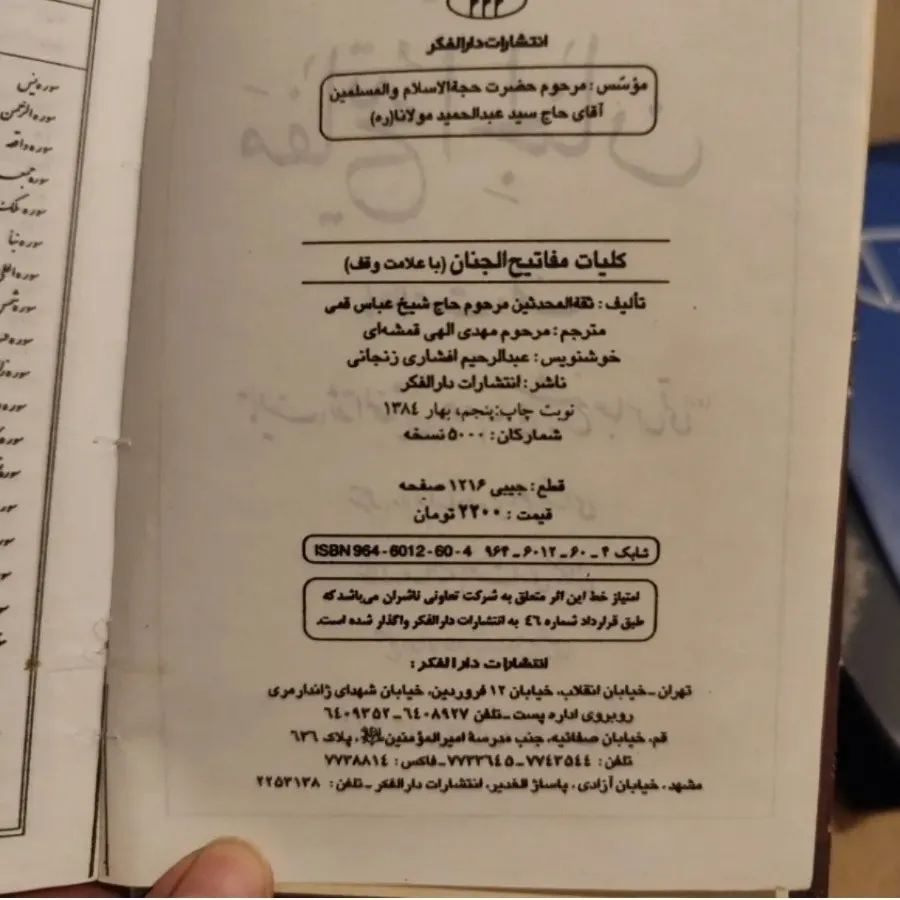 انتشارات دارالفکر
مؤسّس: مرحوم حضرت حجةالاسلام والمسلمین
آقای حاج سید عبدالحمید مولانا(ره)
کلیات مفاتیح‌الجنان (با علامت وقف)
تألیف: ثقةالمحدثین مرحوم حاج شیخ عباس قمی
مترجم: مرحوم مهدی الهی قمشه‌ای
خوشنویس: عبدالرحیم افشاری زنجانی
ناشر: انتشارات دارالفکر
نوبت چاپ: پنجم، بهار ۱۳۸٤
شمارکان: ۵۰۰۰ نسخه
قطع: جیبی ۱۲۱۶ صفحه
قیمت: ۲۲۰۰ تومان
شابک ۴ - ۶۰ - ۶۰۱۲ - ۹۶۴ ISBN 964-6012-60-4
امتیاز خط این اثر متعلق به شرکت تعاونی ناشران می‌باشد که
طبق قرارداد شماره ٤٦ به انتشارات دارالفکر واگذار شده است.
انتشارات دارالفکر:
تهران - خیابان انقلاب، خیابان ۱۲ فروردین، خیابان شهدای ژاندارمری
روبروی اداره پست - تلفن ٦٤۰۸۹۲۷ - ٦٤۰۹۳۵۲
قم، خیابان صفائیه، جنب مدرسهٔ امیرالمؤمنین، پلاک ٦۳٦
تلفن: ۷۷٤۳۵٤٤ - ۷۷۳۳٦٤۵ - فاکس: ۷۷۳۸۸۱٤
مشهد، خیابان آزادی، پاساژ الغدیر، انتشارات دارالفکر - تلفن: ۲۲۵۳۱۳۸
سوره یس
سوره الرحمن
سوره واقعه
سوره جمعه
سوره ملک
سوره نبأ
سوره اعلی
سوره شمس